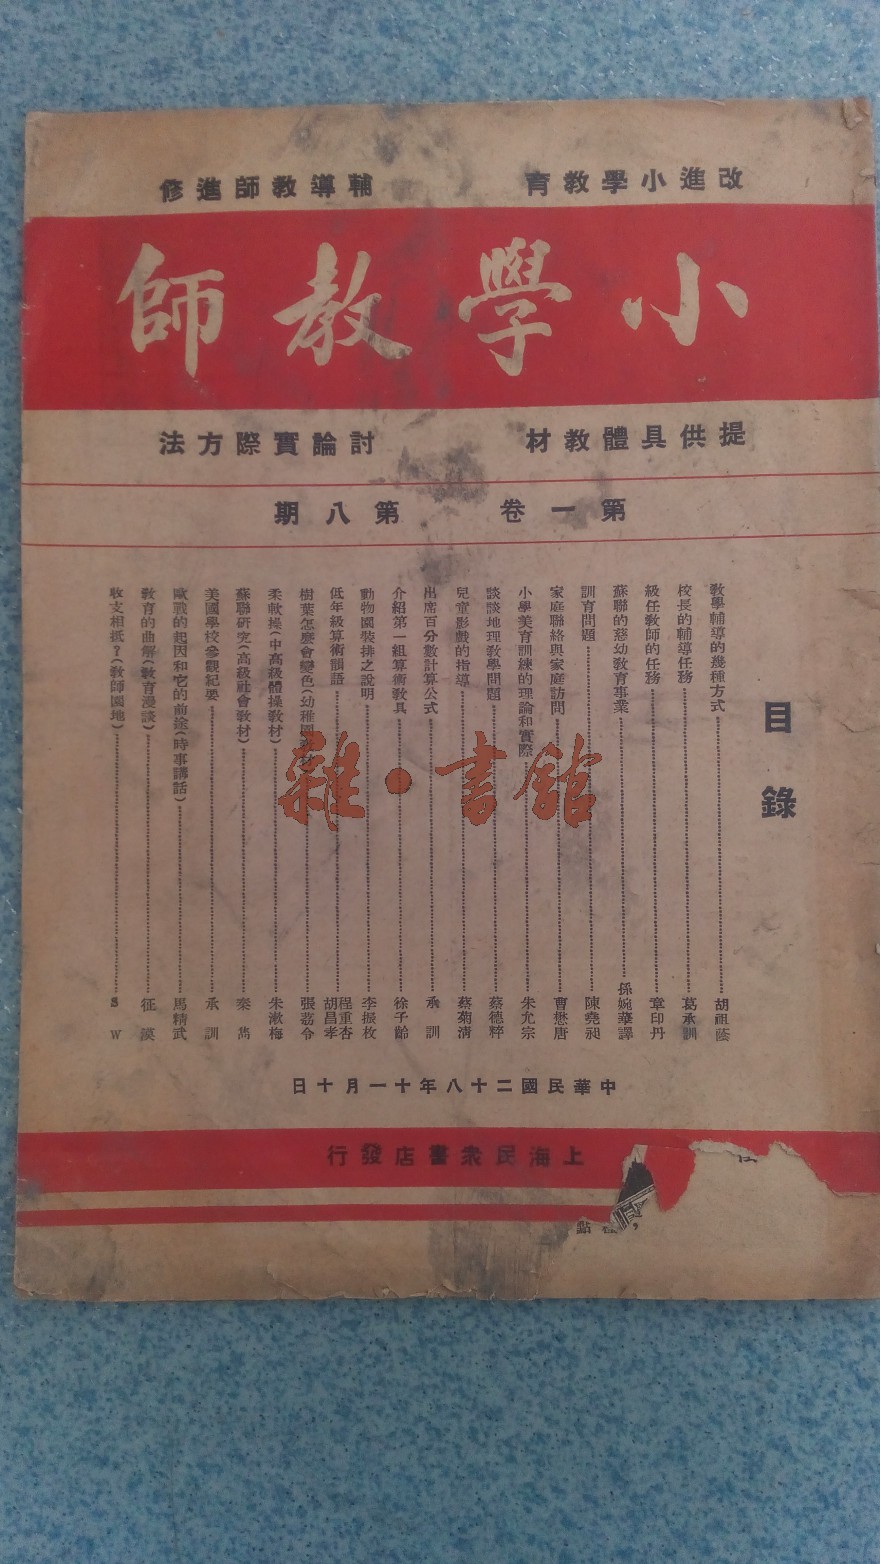 改進小學教育　輔導教師進修
小學教師
提供具體教材　討論實際方法
第一卷　第八期
目錄
教學輔導的幾種方式………胡祖蔭
校長的輔導任務………葛承訓
級任教師的任務………章印丹
蘇聯的慈幼教育事業………孫婉華譯
訓育問題………陳堯昶
家庭聯絡與家庭訪問………曹懋唐
小學美育訓練的理論和實際………朱允宗
談談地理教學問題………蔡德粹
兒童影戲的指導………蔡菊清
出席百分數計算公式………承訓
介紹第一組算術教具………徐子齡
動物園裝排之說明………李振枚
低年級算術韻語………程重杏 胡昌孝
樹葉怎麼會變色(幼稚園教材)………張荔令
柔軟操(中高級體操教材)………朱漱梅
蘇聯研究(高級社會教材)………秦嵩
美國學校參觀紀要………承訓
歐戰的起因和它的前途(時事講話)………馬精武
教育的曲解(教育漫談)………征漠
收支相抵？(教師園地)………S W
雜·書館
中華民國二十八年十一月十日
上海民衆書店發行